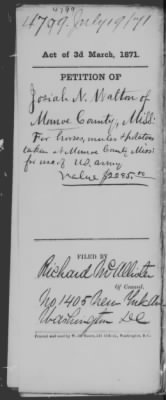 4799
4799. July 19/71
Act of 3d March, 1871.
PETITION OF
Josiah N. Walton of
Monroe County, Miss:
For horses, mules & potatoes
taken at Monroe County Miss:
for use of U.S. army
Value $2085.00
FILED BY
Richard McAllister
Of Counsel.
No 1405 New York Ave
Washington DC
Printed and sold by